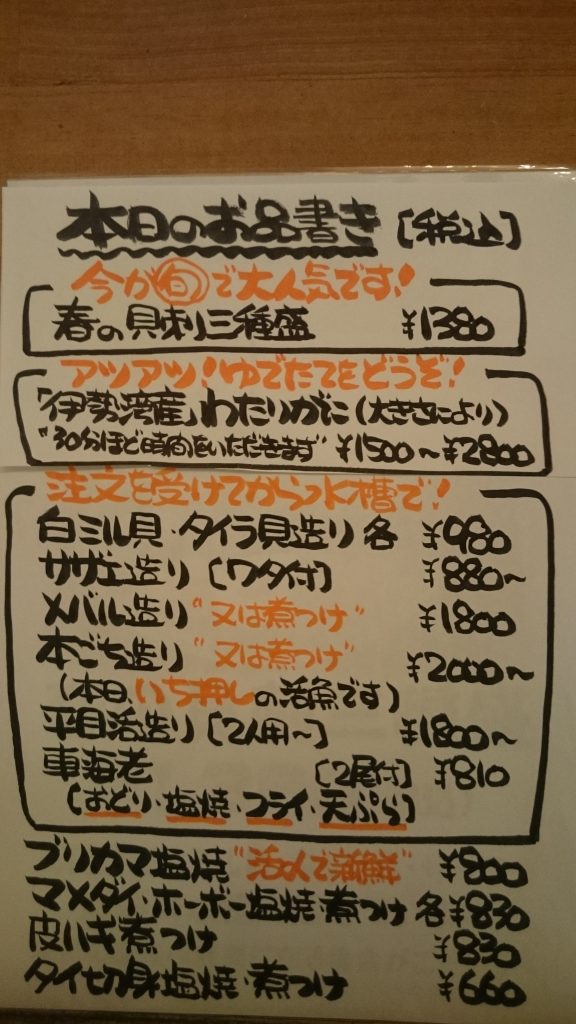 本日のお品書き [税込]
今が旬で大人気です!
春の貝刺し三種盛 ¥1380
アツアツ!ゆでたてをどうぞ!
「伊勢湾産」わたりがに(大きさにより)
"30分ほど時間をいただきます" ¥1500~¥2800
注文を受けてから水槽で!
白ミル貝・タイラ貝造り 各 ¥980
サザエ造り [ワタ付] ¥880~
メバル造り "又は煮つけ" ¥1800
本ごち造り "又は煮つけ" ¥2000~
(本日いち押しの活魚です)
平目活造り [2人用~] ¥1800~
車海老 [2尾付] ¥810
[おどり・塩焼・フライ・天ぷら]
ブリカマ塩焼 "活〆で新鮮" ¥800
マメダイ・ホーボー塩焼・煮つけ 各¥830
皮ハギ煮つけ ¥830
タイ切身塩焼・煮つけ ¥660